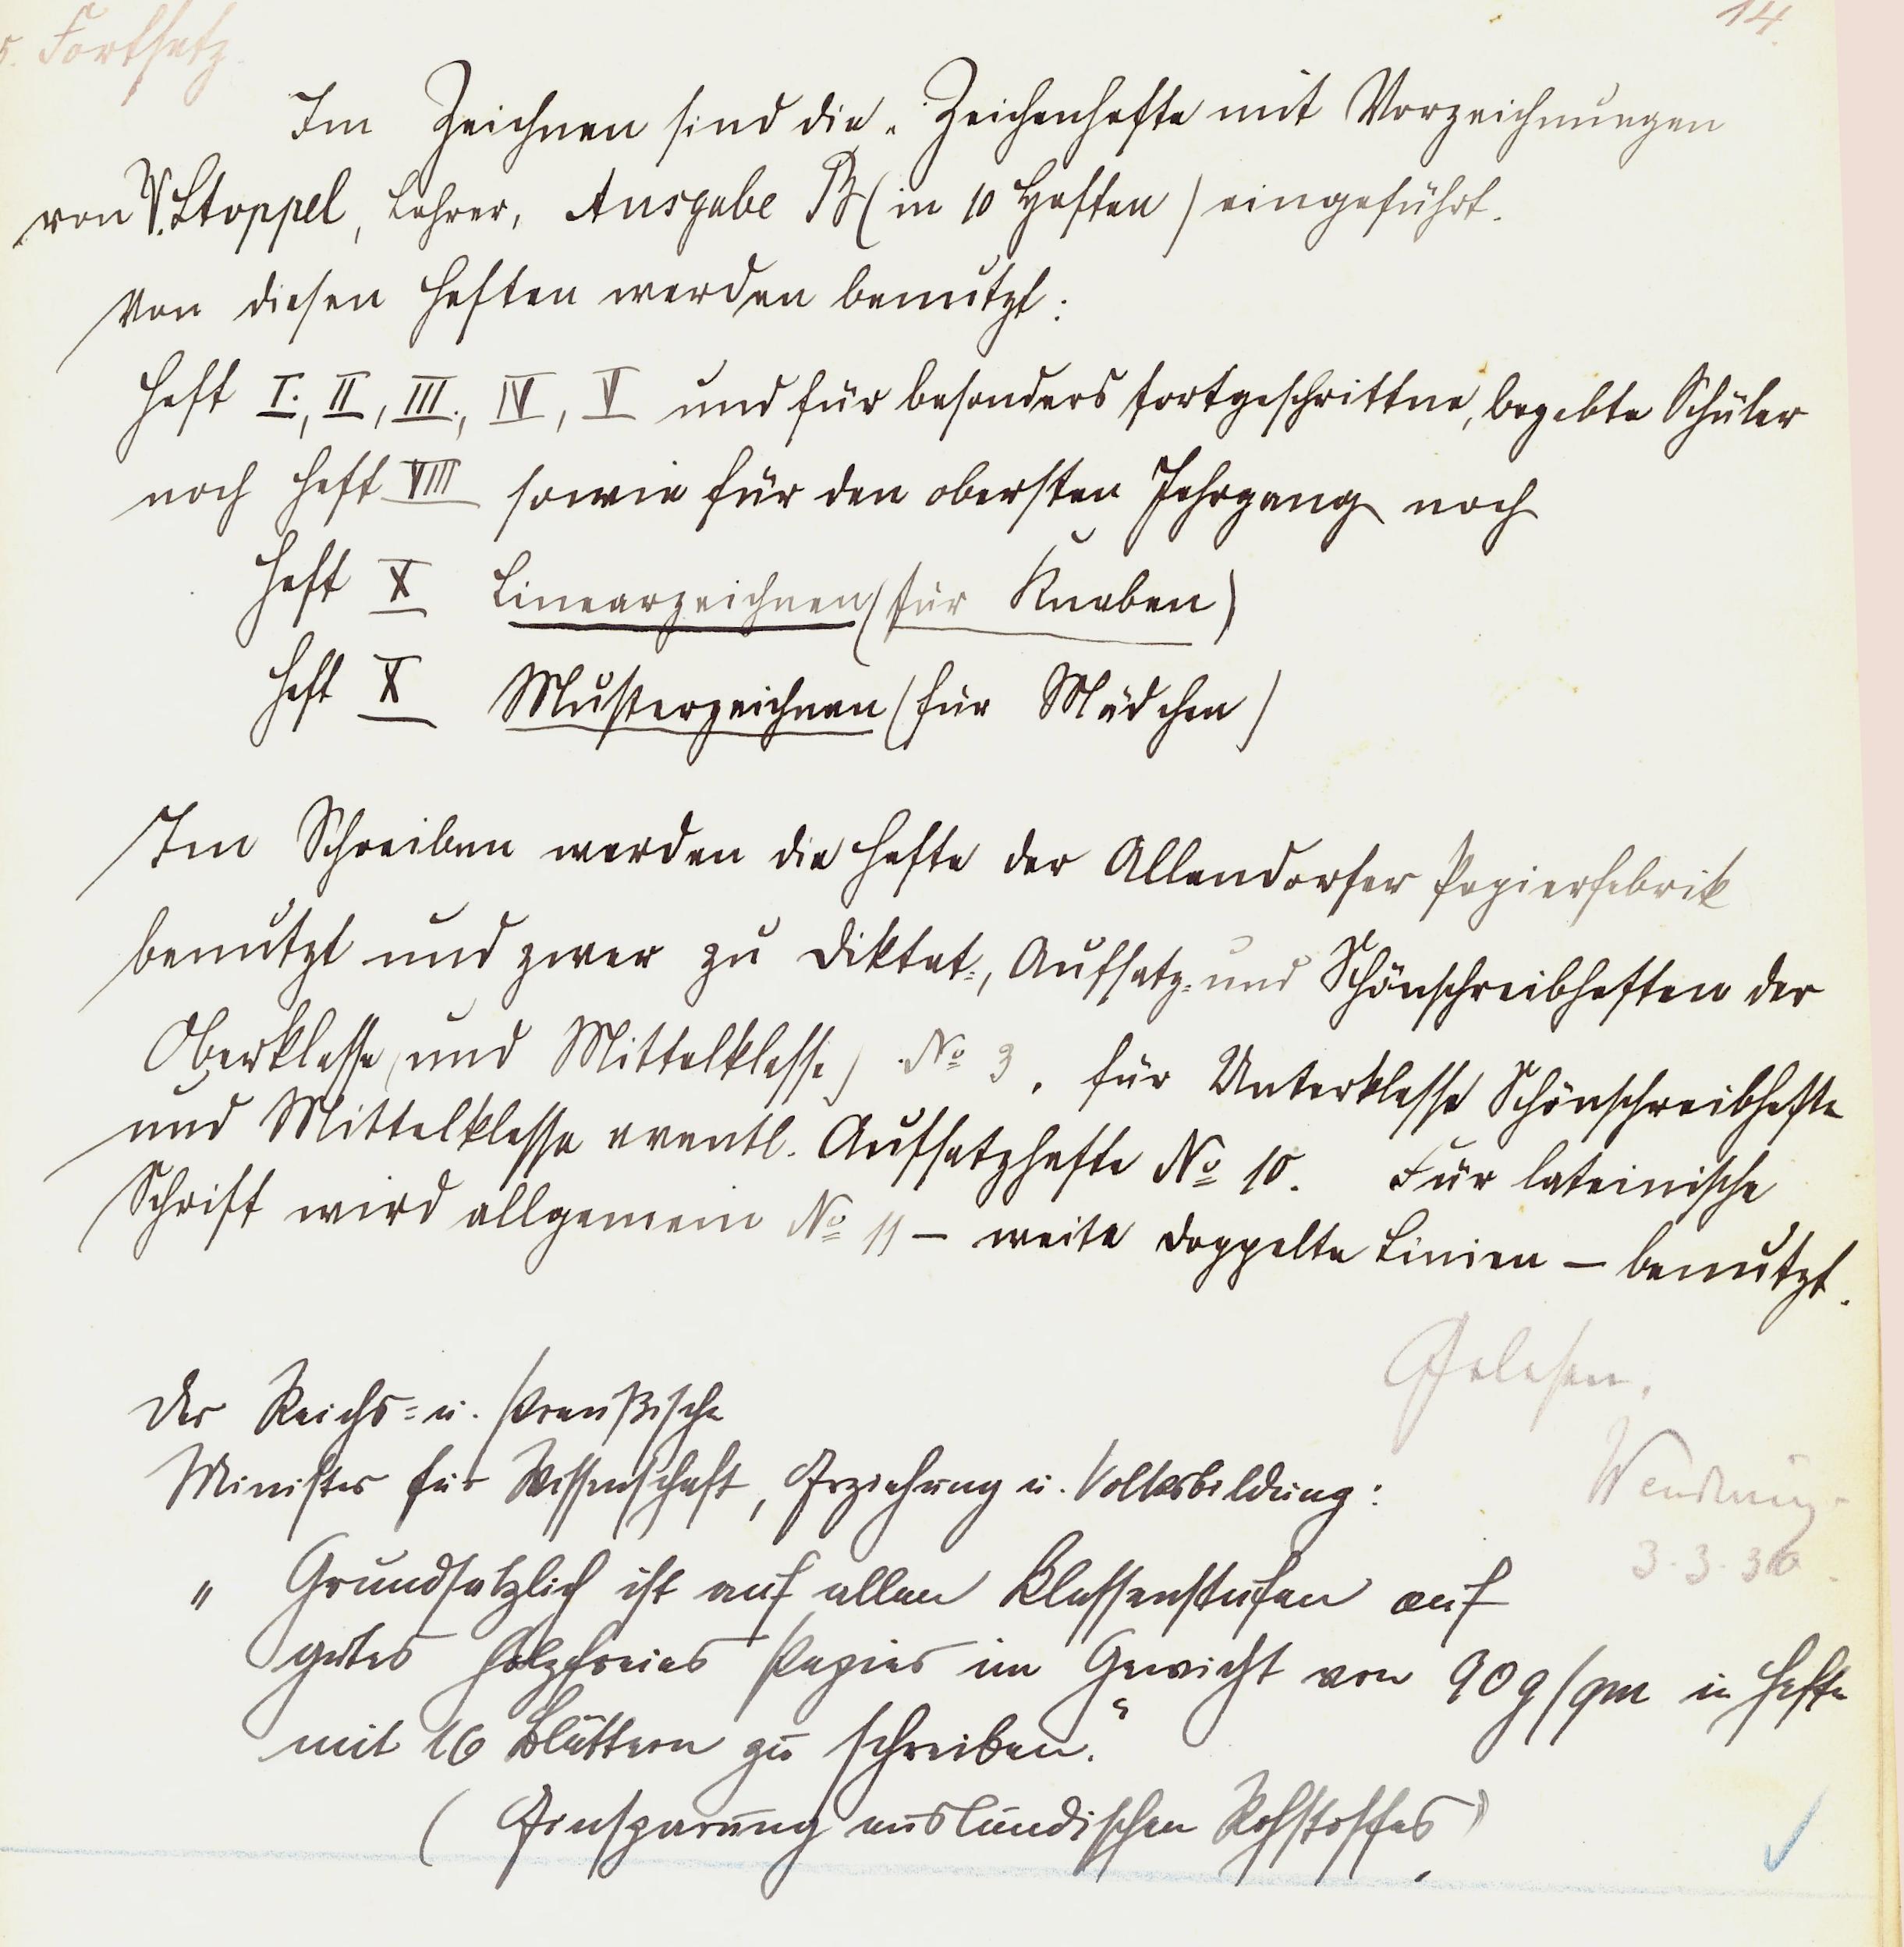 5. Fortsetz.
14.
Im Zeichnen sind die „Zeichenhefte mit Vorzeichnungen
von V. Stoppel, Lehrer, Ausgabe B (in 10 Heften) eingeführt.
Von diesen Heften werden benutzt:
Heft I., II, III., IV, V und für besonders fortgeschrittne, begabte Schüler
noch Heft VIII sowie für den obersten Jahrgang noch
Heft X Linearzeichnen (für Knaben)
Heft X Musterzeichnen (für Mädchen)
Im Schreiben werden die Hefte der Allendorfer Papierfabrik
benutzt und zwar zu Diktat-, Aufsatz- und Schönschreibheften der
Oberklasse (und Mittelklasse) No 3, für Unterklasse Schönschreibhefte
und Mittelklasse eventl. Aufsatzhefte No 10. Für lateinische
Schrift wird allgemein No 11 – weite doppelte Linien – benutzt.
Gelesen.
Der Reichs- u. Preußische
Minister für Wissenschaft, Erziehung u. Volksbildung:
3.3.36.
„Grundsätzlich ist auf allen Klassenstufen auf
gutes holzfreies Papier im Gewicht von 90 g/qm in Hefte
mit 16 Blättern zu schreiben.“
(Einsparung ausländischen Rohstoffes)